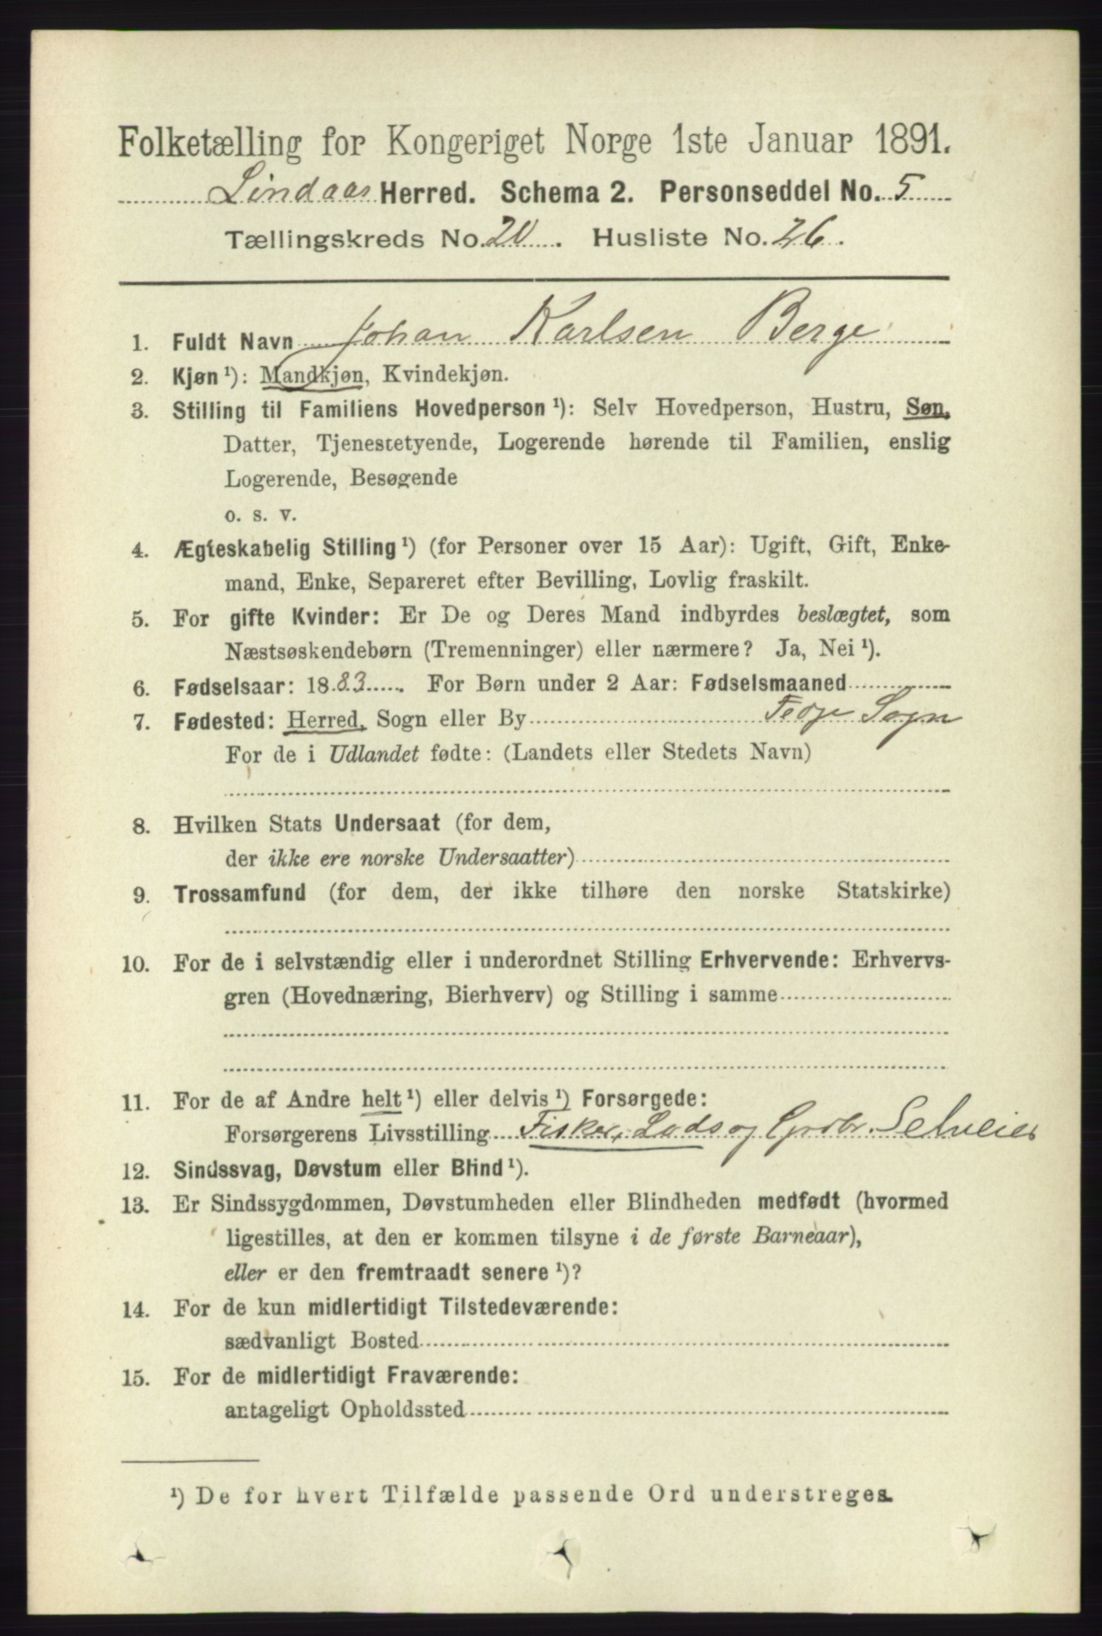 Folketælling for Kongeriget Norge 1ste Januar 1891.
Lindaas Herred. Schema 2. Personseddel No. 5
Tællingskreds No. 20. Husliste No. 26.
1. Fuldt Navn Johan Karlsen Berge
2. Kjøn ¹): Mandkjøn, Kvindekjøn.
3. Stilling til Familiens Hovedperson ¹): Selv Hovedperson, Hustru, Søn,
Datter, Tjenestetyende, Logerende hørende til Familien, enslig
Logerende, Besøgende
o. s. v.
4. Ægteskabelig Stilling ¹) (for Personer over 15 Aar): Ugift, Gift, Enke-
mand, Enke, Separeret efter Bevilling, Lovlig fraskilt.
5. For gifte Kvinder: Er De og Deres Mand indbyrdes beslægtet, som
Næstsøskendebørn (Tremenninger) eller nærmere? Ja, Nei ¹).
6. Fødselsaar: 1883. For Børn under 2 Aar: Fødselsmaaned
7. Fødested: Herred, Sogn eller By Fedje Sogn
For de i Udlandet fødte: (Landets eller Stedets Navn)
8. Hvilken Stats Undersaat (for dem,
der ikke ere norske Undersaatter)
9. Trossamfund (for dem, der ikke tilhøre den norske Statskirke)
10. For de i selvstændig eller i underordnet Stilling Erhvervende: Erhvervs-
gren (Hovednæring, Bierhverv) og Stilling i samme
11. For de af Andre helt ¹) eller delvis ¹) Forsørgede:
Forsørgerens Livsstilling Fisker, Lods og Grdbr. Selveier
12. Sindssvag, Døvstum eller Blind ¹).
13. Er Sindssygdommen, Døvstumheden eller Blindheden medfødt (hvormed
ligestilles, at den er kommen tilsyne i de første Barneaar),
eller er den fremtraadt senere ¹)?
14. For de kun midlertidigt Tilstedeværende:
sædvanligt Bosted
15. For de midlertidigt Fraværende:
antageligt Opholdssted
¹) De for hvert Tilfælde passende Ord understreges.